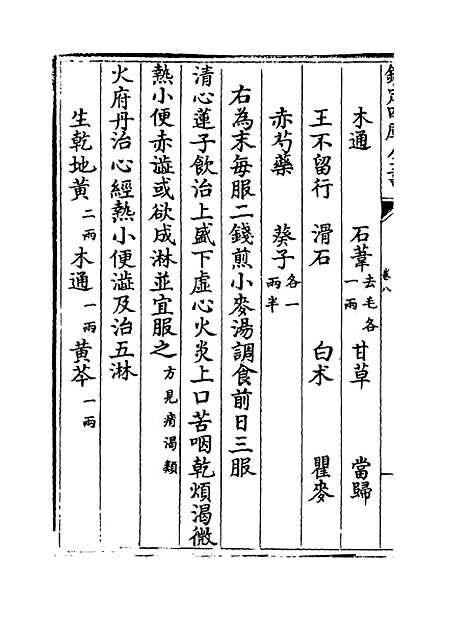 欽定四庫全書
卷八
木通　石葦去毛各一兩　甘草　當歸
王不留行　滑石　白术　瞿麥
赤芍藥　葵子各一兩半
右為末每服二錢煎小麥湯調食前日三服
清心蓮子飲治上盛下虛心火炎上口苦咽乾煩渴微
熱小便赤澁或欲成淋並宜服之方見痟渴類
火府丹治心經熱小便澁及治五淋
生乾地黄二兩　木通一兩　黄芩一兩